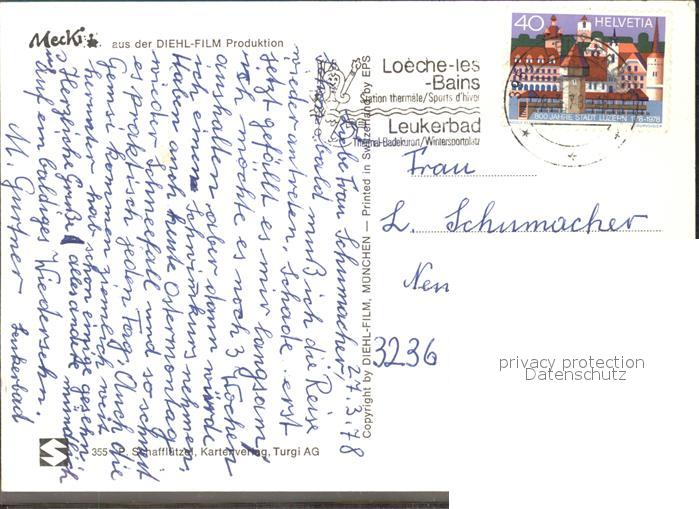 Mecki
aus der DIEHL-FILM Produktion
27.3.78
Liebe Frau Schumacher,
bald muß ich die Reise
wieder antreten. Schade erst
jetzt gefällt es mir langsam
ich möchte es noch 3 Wochen
aushalten aber dann würde
ich einen Schwimmkurs nehmen.
Haben auch heute Ostermontag
wied. Schneefall und so schneit
es praktisch jeden Tag. Auch die
Gäste kommen ziemlich weit
hab schon einige gesehn,
alles andere mündlich
Herzliche Grüße
Auf ein baldiges Wiedersehn.
M. Gurtner Leukerbad
Copyright by DIEHL-FILM, MÜNCHEN — Printed in Switzerland by EPS
Loèche-les
-Bains
Station thermale/Sports d'hiver
Leukerbad
Thermal-Badekurort/Wintersportplatz
40 HELVETIA
800 JAHRE STADT LUZERN 1178-1978
Frau
L. Schumacher
Neu
3236
privacy protection
Datenschutz
355 P. Schafflützel, Kartenverlag, Turgi AG